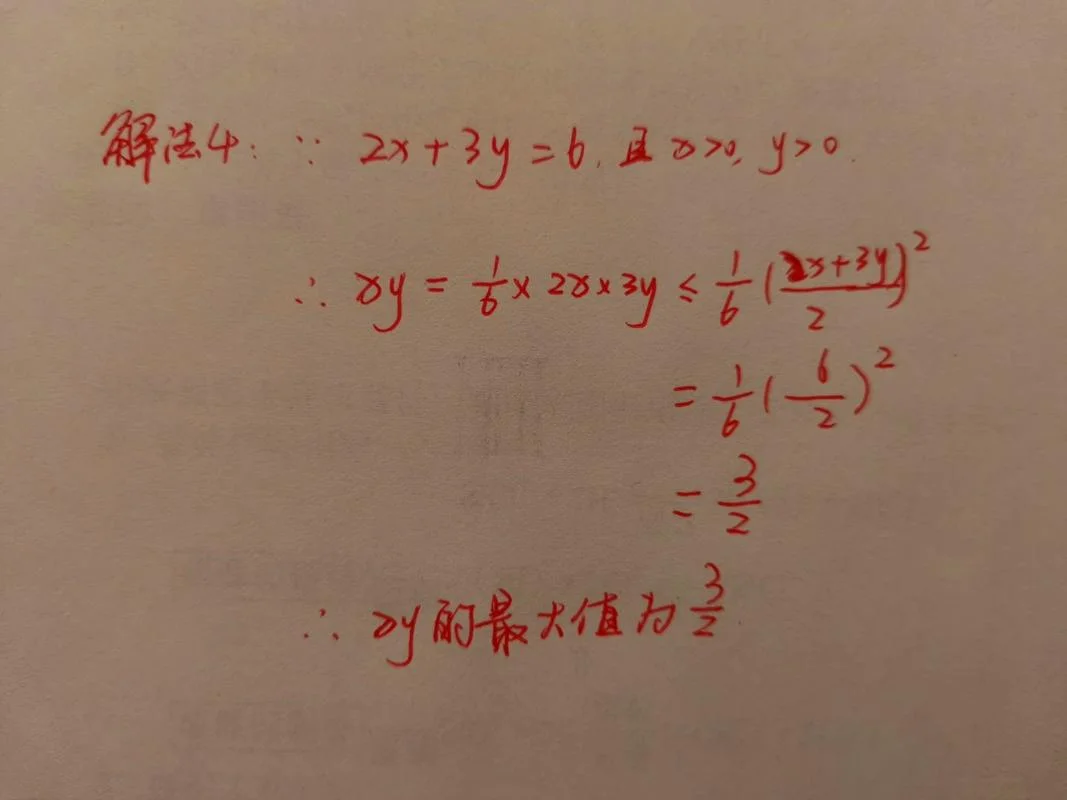 解法4: ∵ 2x+3y=6, 且x>0, y>0.
∴ xy = 1/6 × 2x×3y ≤ 1/6 ((2x+3y)/2)²
= 1/6 (6/2)²
= 3/2
∴ xy的最大值为 3/2.